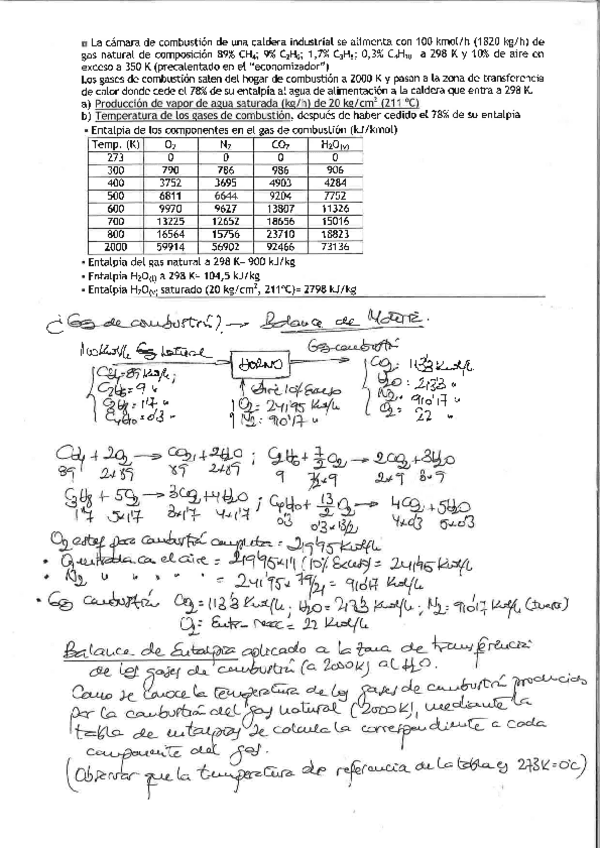 ¤ La cámara de combustión de una caldera industrial se alimenta con 100 kmol/h (1820 kg/h) de
gas natural de composición 89% CH₄; 9% C₂H₆; 1,7% C₃H₈; 0,3% C₄H₁₀ a 298 K y 10% de aire en
exceso a 350 K (precalentado en el "economizador")
Los gases de combustión salen del hogar de combustión a 2000 K y pasan a la zona de transferencia
de calor donde cede el 78% de su entalpia al agua de alimentación a la caldera que entra a 298 K.
a) Producción de vapor de agua saturada (kg/h) de 20 kg/cm² (211 ºC)
b) Temperatura de los gases de combustión, después de haber cedido el 78% de su entalpia
• Entalpia de los componentes en el gas de combustión (kJ/kmol)
Temp. (K) O₂ N₂ CO₂ H₂O(v)
273 0 0 0 0
300 790 786 986 906
400 3752 3695 4903 4284
500 6811 6644 9204 7752
600 9970 9627 13807 11326
700 13225 12652 18656 15016
800 16564 15756 23710 18823
2000 59914 56902 92466 73136
• Entalpia del gas natural a 298 K= 900 kJ/kg
• Entalpia H₂O(l) a 298 K= 104,5 kJ/kg
• Entalpia H₂O(v) saturado (20 kg/cm², 211ºC)= 2798 kJ/kg
¿Gas de combustión? → Balance de Materia.
100 Kmol/h Gas natural Gas combustión
CH₄ = 89 Kmol/h; HORNO CO₂: 113'3 Kmol/h
C₂H₆ = 9 " H₂O: 213'3 "
C₃H₈ = 1'7 " Aire 10% Exceso N₂: 910'17 "
C₄H₁₀ = 0'3 " O₂: 241'95 Kmol/h O₂: 22 "
N₂: 910'17 "
CH₄ + 2O₂ → CO₂ + 2H₂O ; C₂H₆ + 7/2 O₂ → 2CO₂ + 3H₂O
89 2×89 89 2×89 9 7/2×9 2×9 3×9
C₃H₈ + 5O₂ → 3CO₂ + 4H₂O ; C₄H₁₀ + 13/2 O₂ → 4CO₂ + 5H₂O
1'7 5×1'7 3×1'7 4×1'7 0'3 0'3×13/2 4×0'3 5×0'3
O₂ esteq para combustión completa = 219'95 Kmol/h
• O₂ entrada con el aire = 219'95×1'1 (10% Exceso) = 241'95 Kmol/h
• N₂ " " " " = 241'95 × 79/21 = 910'17 Kmol/h
• Gas combustión CO₂ = 113'3 Kmol/h; H₂O = 213'3 Kmol/h; N₂ = 910'17 Kmol/h (inerte)
O₂ = Entr - reac = 22 Kmol/h
Balance de Entalpia aplicado a la zona de transferencia
de los gases de combustión (a 2000K) al H₂O.
Como se conoce la temperatura de los gases de combustión producidos
por la combustión del gas natural (2000K), mediante la
tabla de entalpias se calcula la correspondiente a cada
componente del gas.
(Observar que la temperatura de referencia de la tabla es 273K=0ºC)